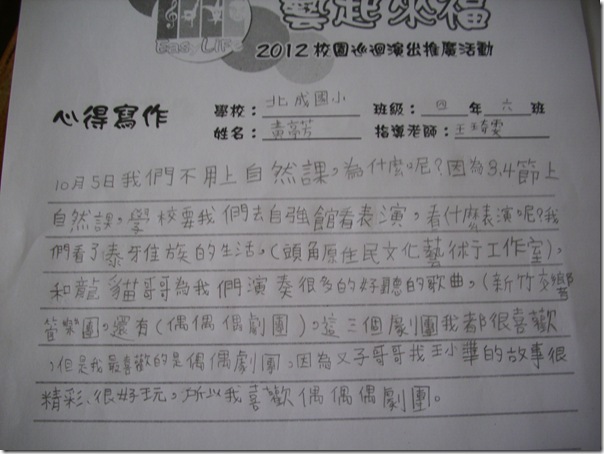 藝起來福
Easy LIFE
2012校園巡迴演出推廣活動
心得寫作
學校：北成國小 班級：四年六班
姓名：黃亭芳 指導老師：王琦雯
10月5日我們不用上自然課，為什麼呢？因為3.4節上
自然課，學校要我們去自強館看表演，看什麼表演呢？我
們看了泰雅族的生活。（頭角原住民文化藝術工作室），
和龍貓哥哥為我們演奏很多的好聽的歌曲，（新竹交響
管樂團。還有（偶偶偶劇團）。這三個劇團我都很喜歡
，但是我最喜歡的是偶偶劇團，因為叉子哥哥找王小華的故事很
精彩、很好玩，所以我喜歡偶偶偶劇團。